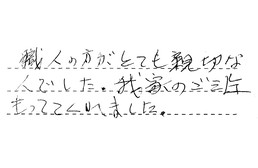 職人の方がとても親切な
人でした。我家のご三
もってくれました。